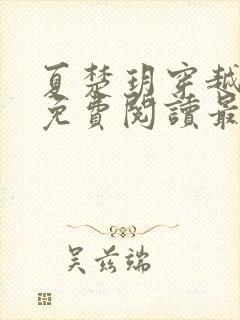 夏楚玥穿越
免費閱讀最
吴兹端